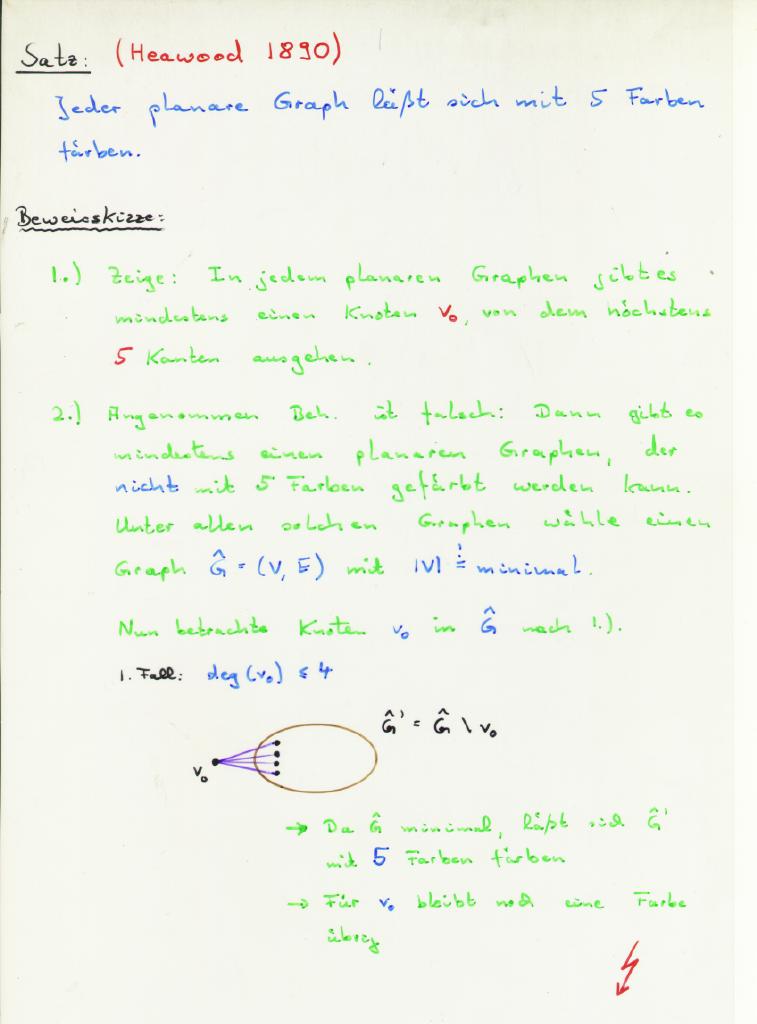 Satz: (Heawood 1890)
Jeder planare Graph läßt sich mit 5 Farben
färben.
Beweisskizze:
1.) Zeige: In jedem planaren Graphen gibt es
mindestens einen Knoten v₀, von dem höchstens
5 Kanten ausgehen.
2.) Angenommen Beh. ist falsch: Dann gibt es
mindestens einen planaren Graphen, der
nicht mit 5 Farben gefärbt werden kann.
Unter allen solchen Graphen wähle einen
Graph Ĝ = (V, E) mit |V| != minimal.
Nun betrachte Knoten v₀ in Ĝ nach 1.).
1. Fall: deg(v₀) ≤ 4
Ĝ' = Ĝ \ v₀
v₀
→ Da Ĝ minimal, läßt sich Ĝ'
mit 5 Farben färben
→ Für v₀ bleibt noch eine Farbe
übrig